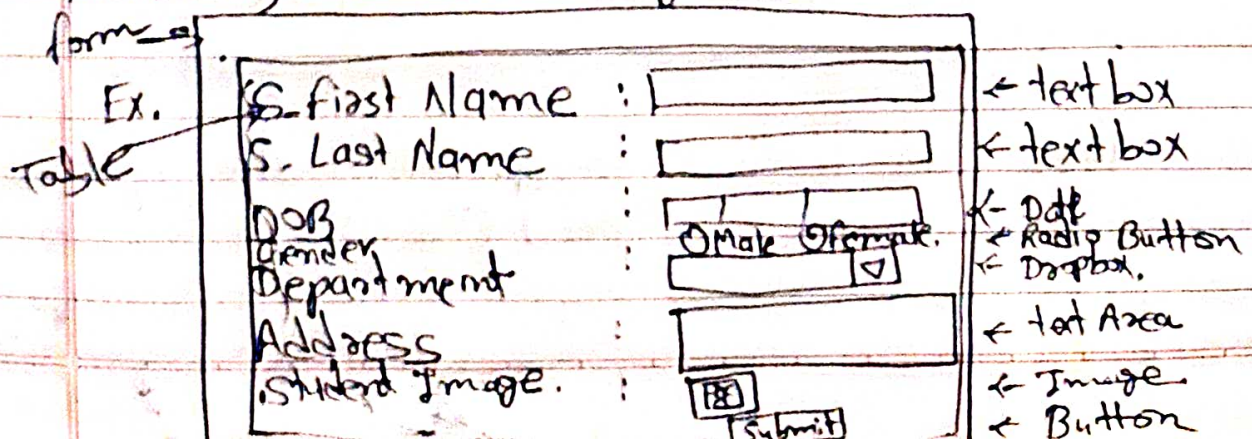 form
Ex.
Table
S. First Name : ← text box
S. Last Name : ← text box
DOB : ← Date
Gender Male Female. ← Radio Button
Department : ← Dropbox.
Address : ← text Area
Student Image. : ← Image.
Submit ← Button